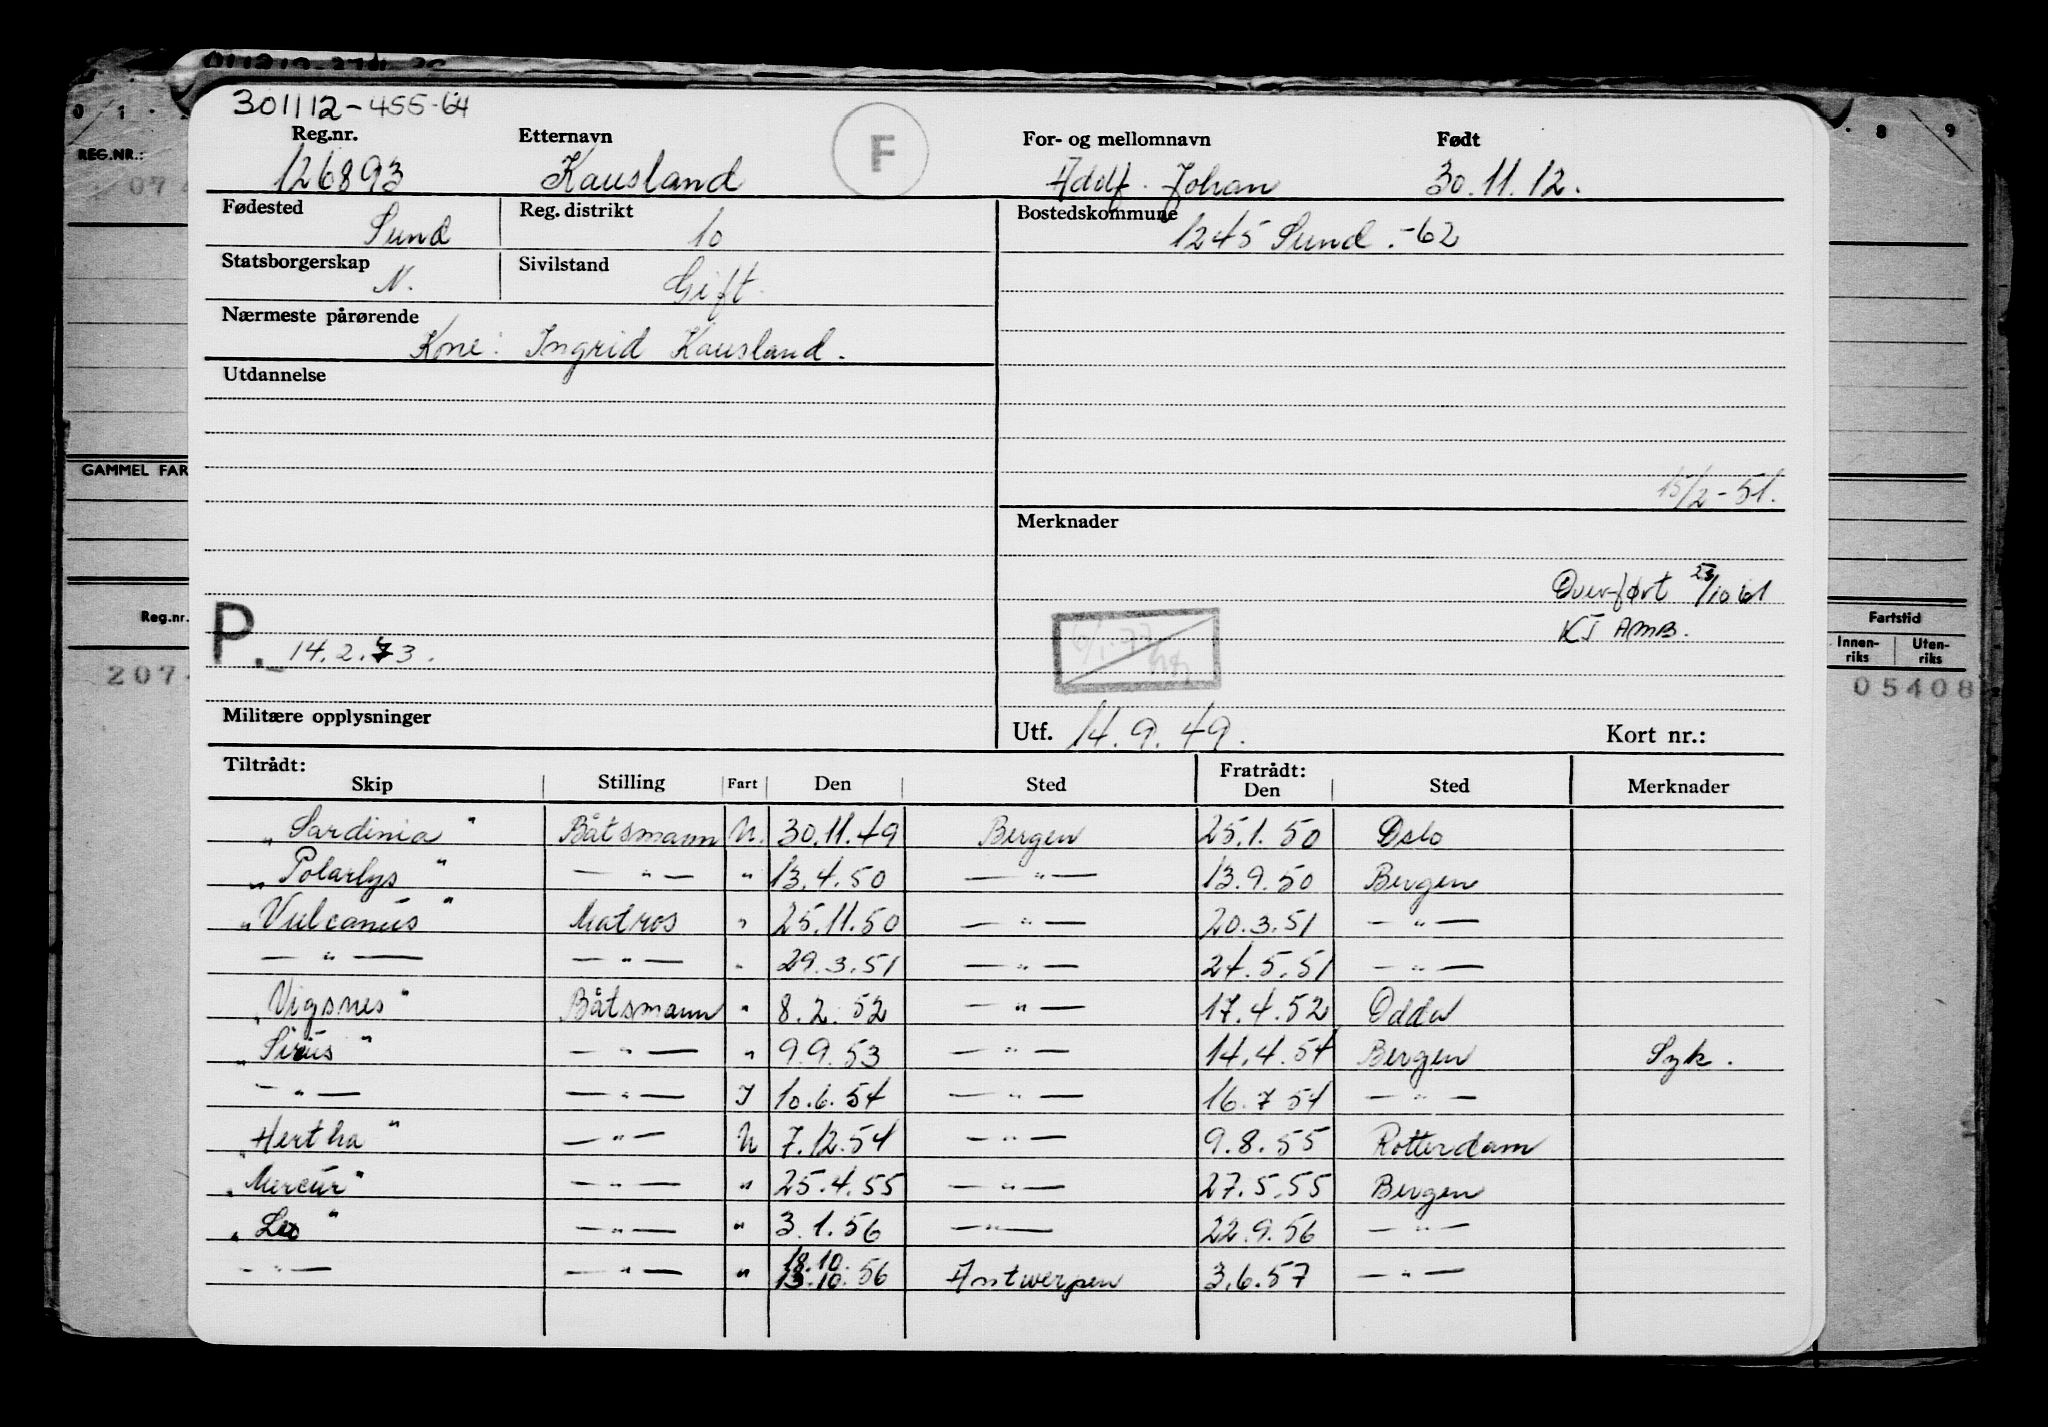 301112-455-64
Reg.nr. Etternavn F For- og mellomnavn Født
126893 Kausland Adolf Johan 30.11.12.
Fødested Reg. distrikt Bostedskommune
Sund 10 1245 Sund. -62
Statsborgerskap Sivilstand
N. Gift
Nærmeste pårørende
Kone: Ingrid Kausland.
Utdannelse
15/2-51.
Merknader
Overført 25/10 61
KJ AMB.
P. 14.2.73.
Militære opplysninger Utf. 14.9.49. Kort nr.:
Tiltrådt: Fratrådt:
Skip Stilling Fart Den Sted Den Sted Merknader
„Sardinia" Båtsmann U. 30.11.49 Bergen 25.1.50 Oslo
„Polarlys" —"— " 13.4.50 —"— 13.9.50 Bergen
„Vulcanus" Matros " 25.11.50 —"— 20.3.51 —"—
—"— —"— " 29.3.51 —"— 24.5.51 —"—
„Vigsnes" Båtsmann " 8.2.52 —"— 17.4.52 Odda
„Sirius" —"— " 9.9.53 —"— 14.4.54 Bergen Syk.
—"— —"— I 10.6.54 —"— 16.7 54 —"—
„Hertha" —"— U 7.12.54 —"— 9.8.55 Rotterdam
„Mercur" —"— " 25.4.55 —"— 27.5.55 Bergen
„Leo" —"— " 3.1.56 —"— 22.9.56 —"—
18.10.
—"— —"— " 13.10.56 Antwerpen 3.6.57 —"—
0 1
REG.NR.:
07
GAMMEL FAR
Reg.nr.
207
8 9
Fartstid
Innen-riks Uten-riks
05408